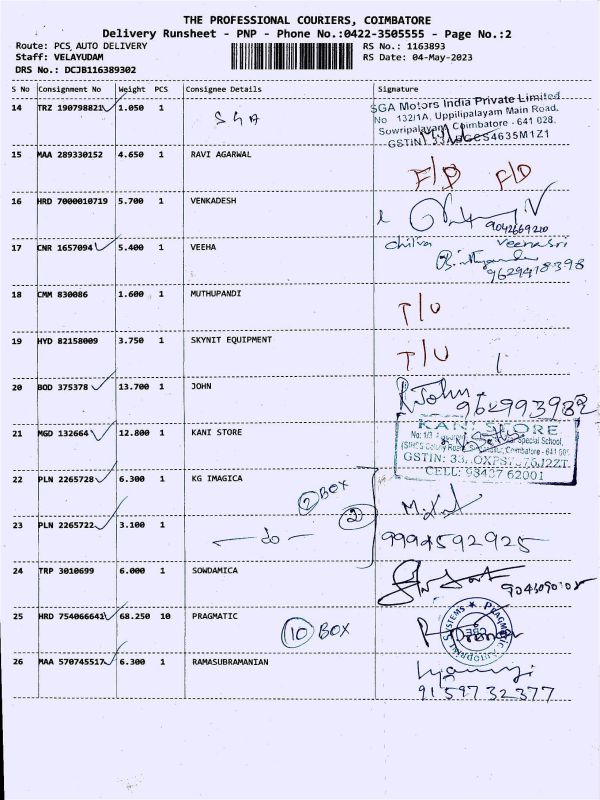 THE PROFESSIONAL COURIERS, COIMBATORE
Delivery Runsheet - PNP - Phone No.:0422-3505555 - Page No.:2
Route: PCS AUTO DELIVERY
Staff: VELAYUDAM
DRS No.: DCJB116389302
RS No.: 1163893
RS Date: 04-May-2023
S No Consignment No Weight PCS Consignee Details Signature
14 TRZ 190798821 1.050 1 SGA
SGA Motors India Private Limited
No 132/1A, Uppilipalayam Main Road,
Sowripalayam Coimbatore - 641 028.
15 MAA 289330152 4.650 1 RAVI AGARWAL
16 HRD 7000010719 5.700 1 VENKADESH
9042669210
17 CNR 1657094 5.400 1 VEEHA
9629418398
18 CMM 830086 1.600 1 MUTHUPANDI T/U
19 HYD 82158009 3.750 1 SKYNIT EQUIPMENT T/U
20 BOD 375378 13.700 1 JOHN John
21 MGD 132664 12.800 1 KANI STORE
KANI STORE
Special School,
Coimbatore - 641
GSTIN: 33
CELL: 98437 62001
22 PLN 2265728 6.300 1 KG IMAGICA 2 BOX
23 PLN 2265722 3.100 1 — do — 2
9994592925
24 TRP 3010699 6.000 1 SOWDAMICA
25 HRD 754066641 68.250 10 PRAGMATIC 10 BOX
26 MAA 570745517 6.300 1 RAMASUBRAMANIAN
9159732377